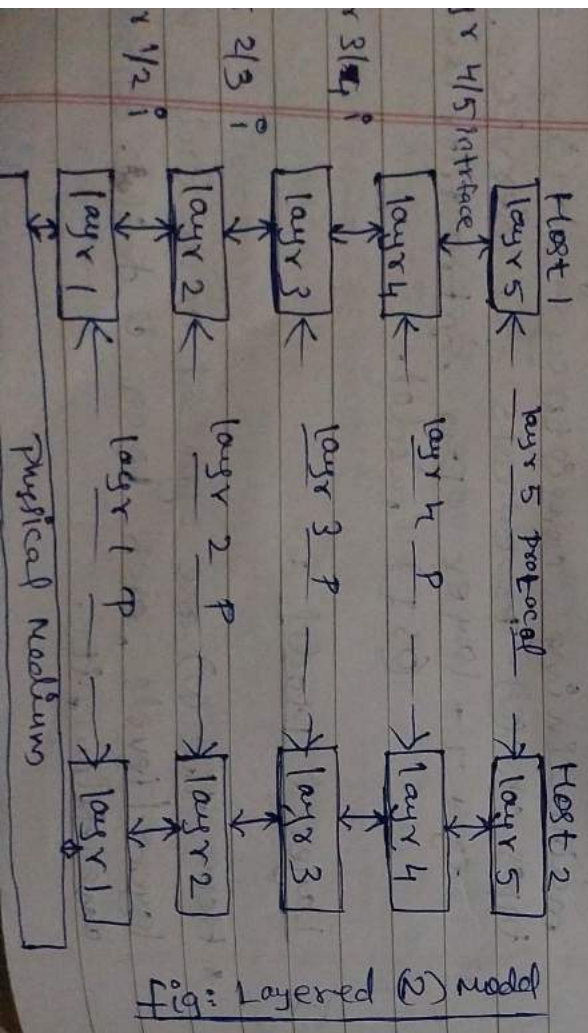 Host 1 Host 2
layr 5 layr 5 protocol layr 5
yr 4/5 intrface
layr 4 layr 4 P layr 4
r 3/4 i
layr 3 layr 3 P layr 3
2/3 i
layr 2 layr 2 P layr 2
r 1/2 i
layr 1 layr 1 P layr 1
Physical Medium
fig: Layered (2) Modl